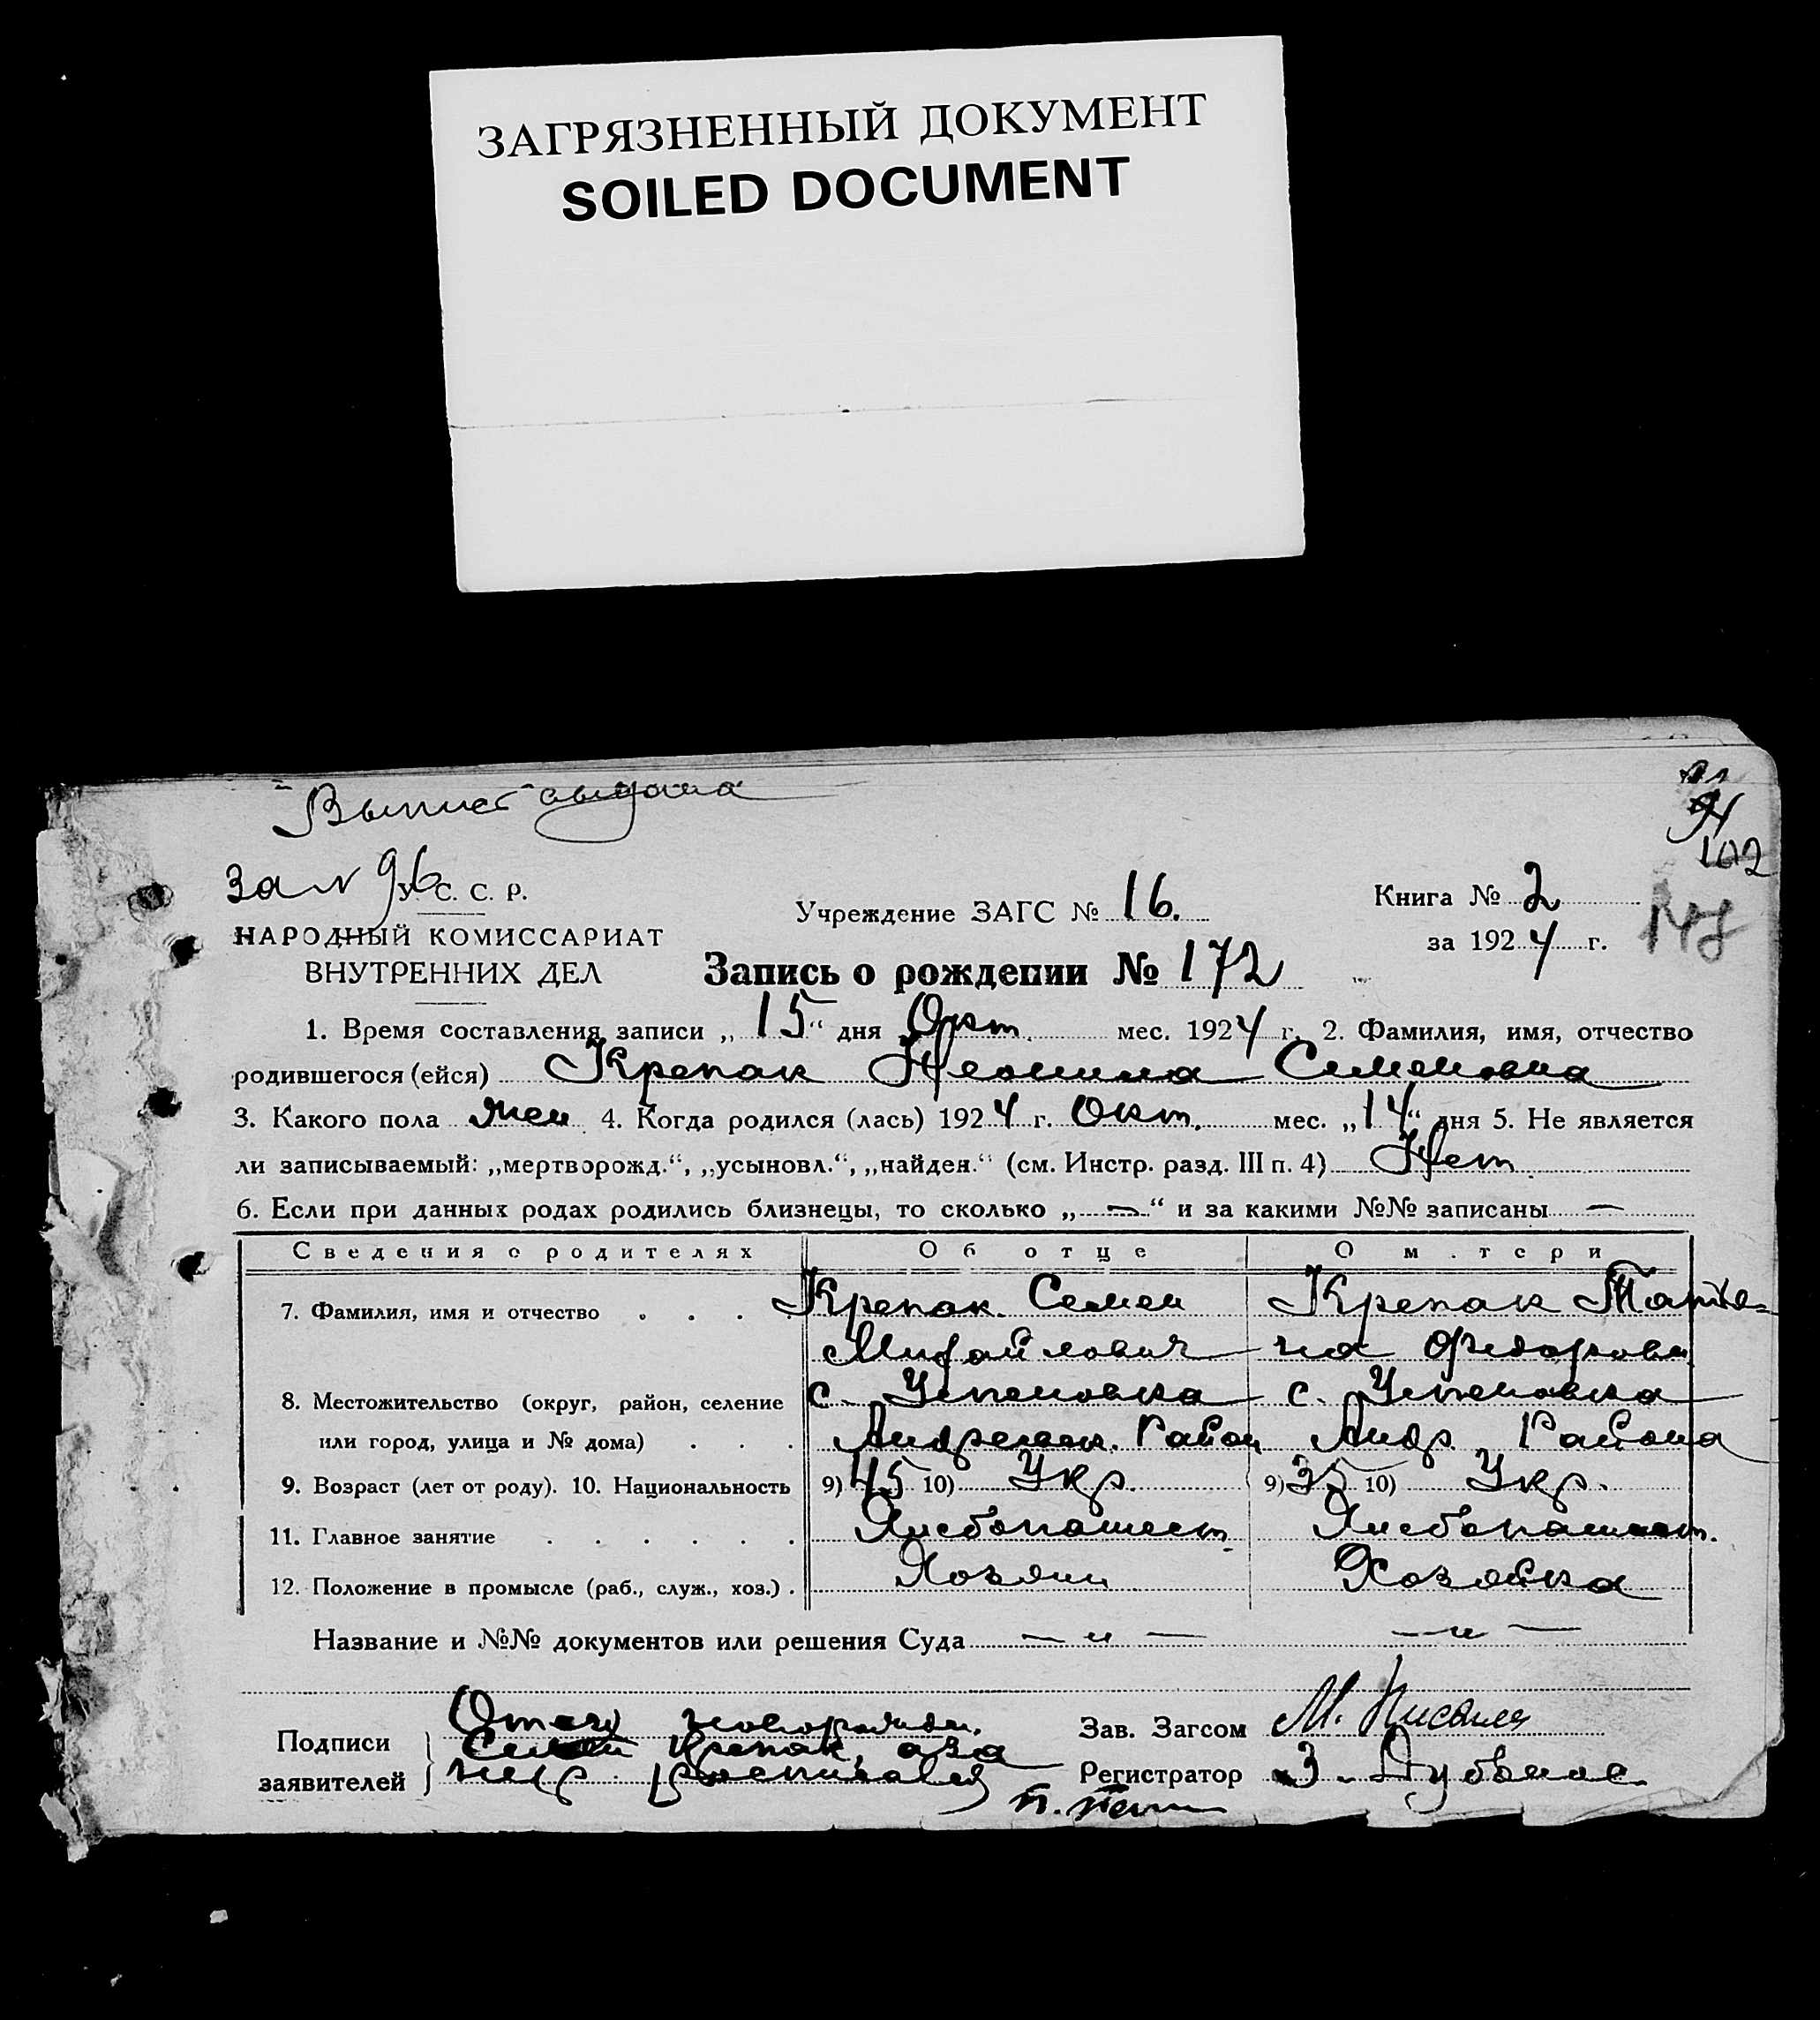 ЗАГРЯЗНЕННЫЙ ДОКУМЕНТ
SOILED DOCUMENT
Выпись выдана
102
за № 96
У. С. С. Р.
НАРОДНЫЙ КОМИССАРИАТ
ВНУТРЕННИХ ДЕЛ
Учреждение ЗАГС № 16.
Книга № 2
за 1924 г.
Запись о рождении № 172
1. Время составления записи „15“ дня Окт. мес. 1924 г. 2. Фамилия, имя, отчество
родившегося (ейся) Крепак Неонила Семеновна
3. Какого пола жен 4. Когда родился (лась) 1924 г. Окт. мес. „14“ дня 5. Не является
ли записываемый: „мертворожд.“, „усыновл.“, „найден.“ (см. Инстр. разд. III п. 4) Нет
6. Если при данных родах родились близнецы, то сколько „—“ и за какими №№ записаны —
Сведения о родителях Об отце О м.тери
7. Фамилия, имя и отчество . . . . Крепак Семен Крепак Татья-
Михайлович на Федорова
8. Местожительство (округ, район, селение с. Успеновка с. Успеновка
или город, улица и № дома) . . . Андреевск. Район Андр. Района
9. Возраст (лет от роду). 10. Национальность 9) 45 10) Укр. 9) 35 10) Укр.
11. Главное занятие . . . . . . Хлебопашест. Хлебопашест.
12. Положение в промысле (раб., служ., хоз.) . Хозяин Хозяйка
Название и №№ документов или решения Суда — „ — — „ —
Подписи
заявителей
Отец новорожден.
Семен Крепак, а за
негр росписался
Зав. Загсом М.
Регистратор З.